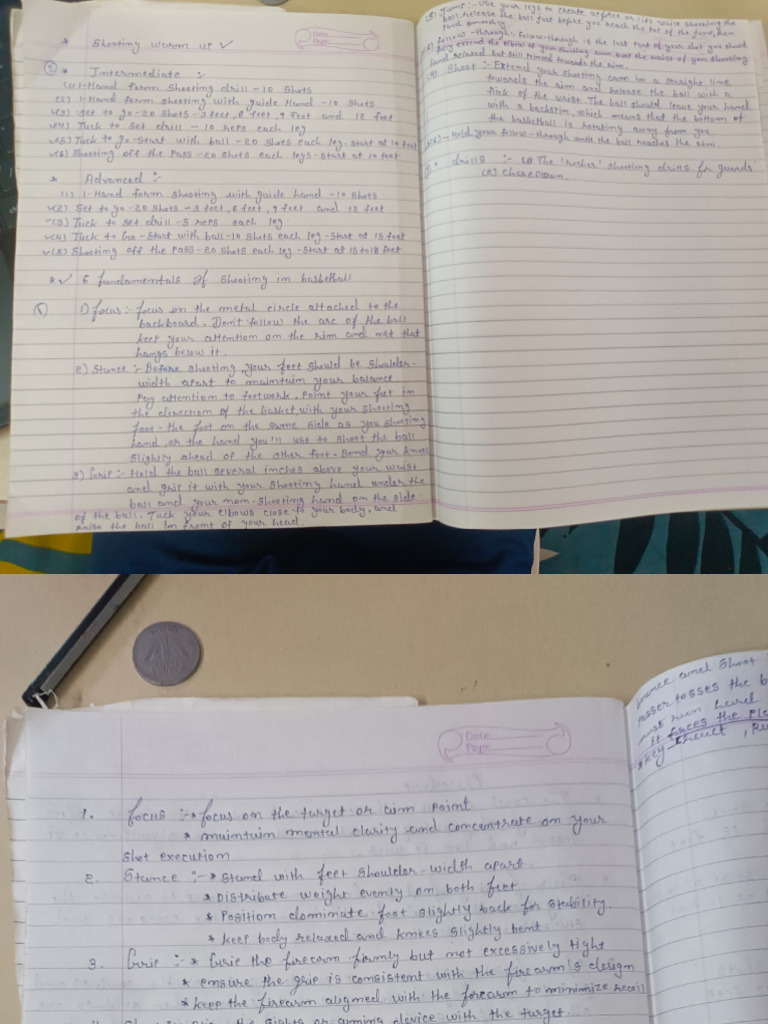 Date
Page
* Shooting warm up ✓
② * Intermediate :-
(1) 1-Hand form Shooting drill - 10 Shots
(2) 1-Hand form shooting with guide Hand - 10 Shots
(3) Set to go - 20 Shots - 3 feet, 6 feet, 9 feet and 12 feet
(4) Tuck to Set drill - 10 reps each leg
(5) Tuck to go - Start with ball - 20 Shots each leg - Start at 10 feet
(6) Shooting off the Pass - 20 Shots each legs - Start at 10 feet
* Advanced :-
(1) 1-Hand form shooting with guide hand - 10 Shots
(2) Set to go - 20 Shots - 3 feet, 6 feet, 9 feet and 12 feet
(3) Tuck to set drill - 5 reps each leg
(4) Tuck to Go - Start with ball - 10 Shots each leg - Start at 15 feet
(5) Shooting off the Pass - 20 Shots each leg - Start at 15 to 18 feet
*✓ 6 fundamentals of Shooting in basketball
① 1) focus :- focus on the metal circle attached to the
backboard. Don't follow the arc of the ball
keep your attention on the rim and net that
hangs below it.
2) Stance :- Before shooting, your feet should be shoulder-
width apart to maintain your balance
Pay attention to footwork. Point your feet in
the direction of the basket, with your shooting
foot - the foot on the same side as you shooting
hand, or the hand you'll use to shoot the ball
slightly ahead of the other foot. Bend your knees
3) Grip :- Hold the ball several inches above your wrist
and grip it with your shooting hand under the
ball and your non-shooting hand on the side
of the ball. Tuck your elbows close to your body, and
raise the ball in front of your head.
Jump :- Use your legs to create upforce or lift while shooting the
ball. Release the ball just before you reach the top of the jump, then
land smoothly
follow-through :- follow-through is the last part of your shot you should
fully extend the elbow of your shooting arm over the wrist of your shooting
hand relaxed but still pointed towards the rim.
(4) Shoot :- Extend your shooting arm in a straight line
towards the rim and release the ball with a
flick of the wrist. The ball should leave your hand
with a backspin, which means that the bottom of
the basketball is rotating away from you
- Hold your follow-through until the ball reaches the rim
drills :- (1) The 'rocker' shooting drills for guards
(2) Chase Down.
Date
Page
1. focus :- * focus on the target or aim point
* maintain mental clarity and concentrate on your
shot execution
2. Stance :- * Stand with feet shoulder-width apart.
* Distribute weight evenly on both feet
* Position dominate foot slightly back for stability.
* keep body relaxed and knees slightly bent
3. Grip :- * Grip the firearm firmly but not excessively tight
* ensure the grip is consistent with the firearm's design
* keep the firearm aligned with the forearm to minimize recoil
the sights or aiming device with the target.
bounce and Shoot
Passer tosses the b
must run
It forces the
*key - Circuit